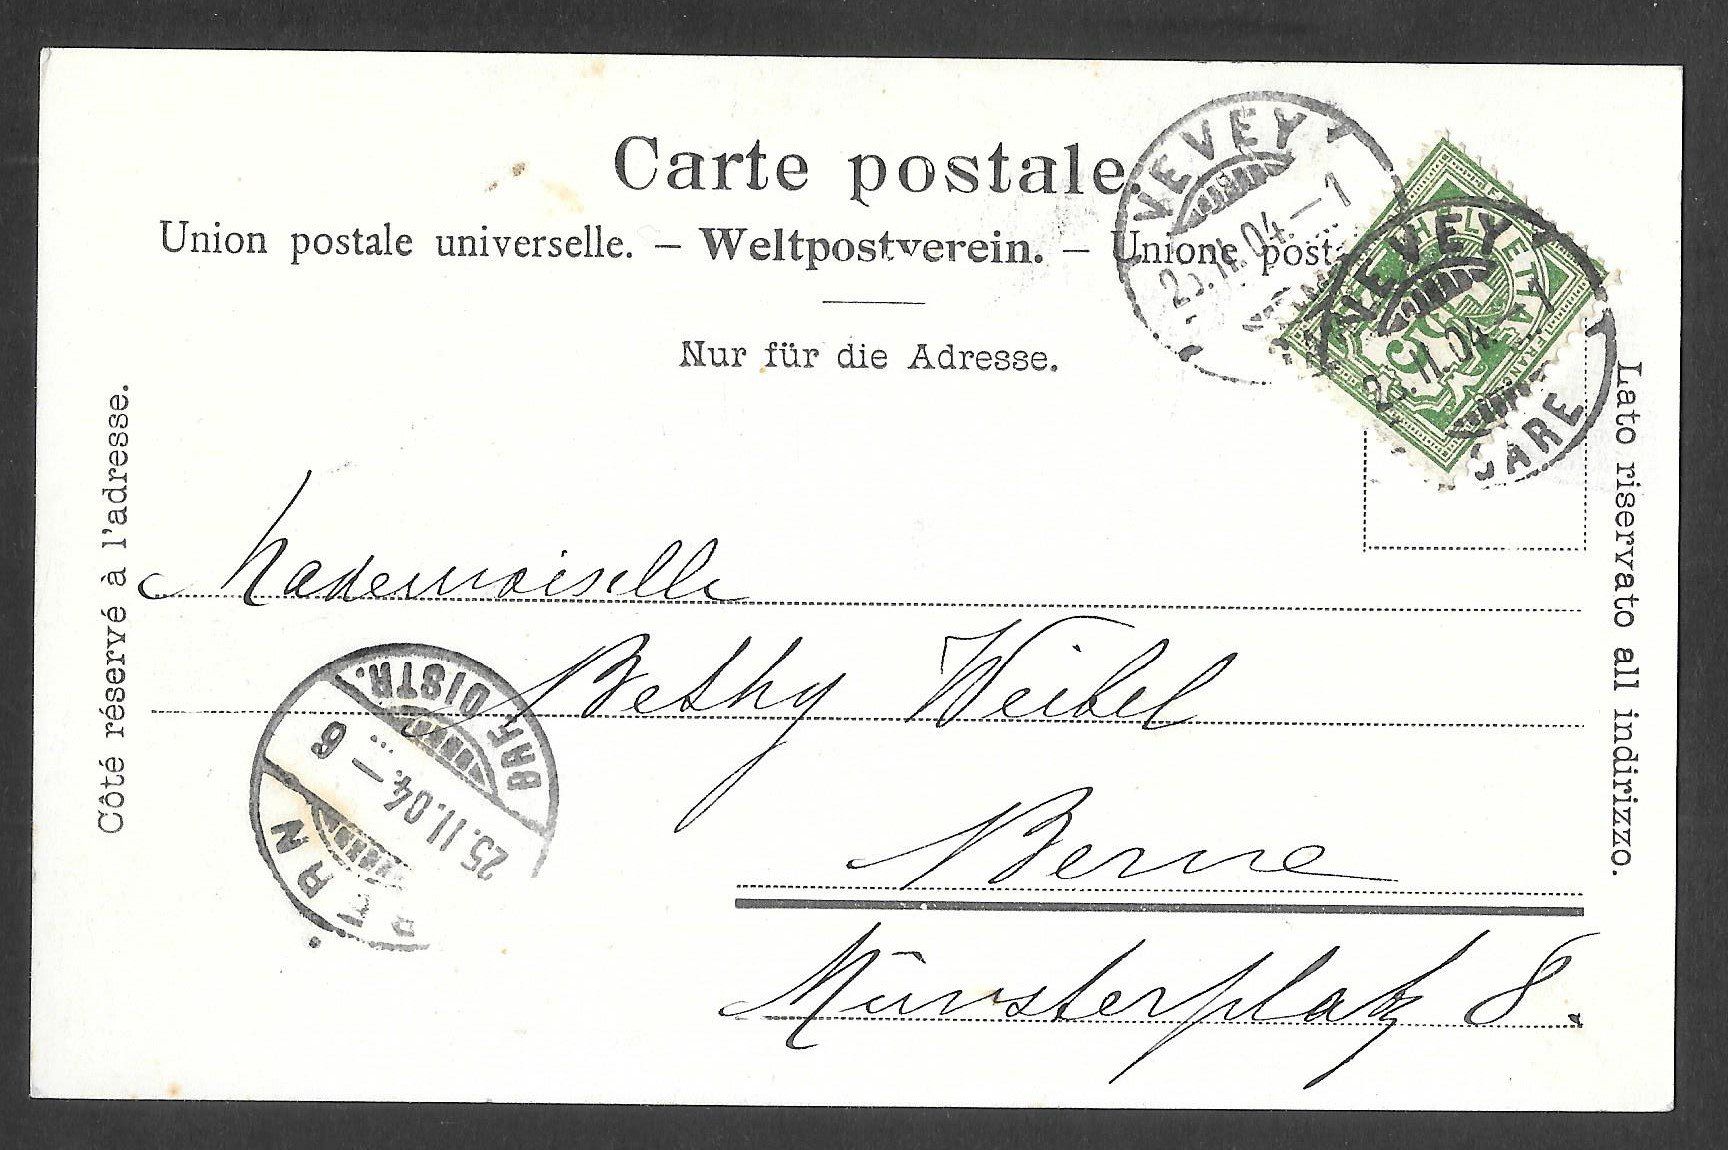 Carte postale.
Union postale universelle. – Weltpostverein. – Unione post
Nur für die Adresse.
Côté réservé à l'adresse.
Lato riservato all indirizzo.
VEVEY 1
25.II.04.–1
HELVETIA
FRAN
5
VEVEY 1
II.04.–1
GARE
Mademoiselle
Bethy Weibel
Berne
Münsterplatz 8.
BERN
BRF. DISTR.
25.II.04.–6